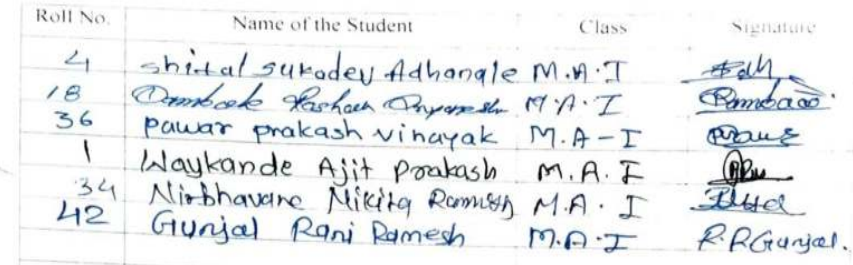 Roll No. Name of the Student Class Signature
4 Shital Sukadev Adhangle M.A.I
18 M.A.I
36 Pawar prakash vinayak M.A-I
1 Waykande Ajit Prakash M.A.I
34 Nirbhavane Nikita Ramesh M.A. I
42 Gunjal Rani Ramesh M.A.I R.RGunjal.